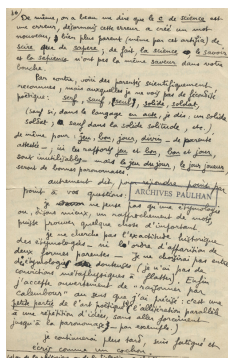 De même, on a beau me dire que le c de science est
une erreur, désormais cette erreur a créé un mot
nouveau, bien plus parent (même par cet artifice) de
scire que de sapere ; de fait, la science, le savoir
et la sapience n'ont pas la même saveur dans notre
bouche.
Par contre, voici des parentés scientifiquement
reconnues, mais auxquelles je ne vois pas de fécondité
poétique : sou, seul, solide, soldat,
(sauf si, dans le langage en acte, je dis, un solide
soldat ; seul dans la solide solitude, etc.)
de même, pour : jeu, bon, jours, divin - de parenté
attestée -, ici les rapports jeu et bon, bon et jour,
sont inutilisables mais le jeu du jour, le jour jouera
seront de bonnes paronomases.
autrement dit, point par
point à vos questions :
ARCHIVES PAULHAN
je ne pense pas qu'une étymologie
ou, disons mieux, un rapprochement de mots
puisse prouver quelque chose d'important.
je ne cherche pas l'exactitude historique
des étymologies, ni l'ordre d'apparition de
deux formes parentes. Je ne choisirai pas entre
convictions métaphysiques à flatter). Enfin
j'accepte ouvertement de "raisonner par
calembour" au sens que j'ai précisé : c'est une
petite partie de l'art poétique (l'allitération parallèle
à une répétition d'idées, sans aller forcément
jusqu'à la paronomase, par exemple)
je continuerai plus tard, suis fatigué et
écris comme un cochon